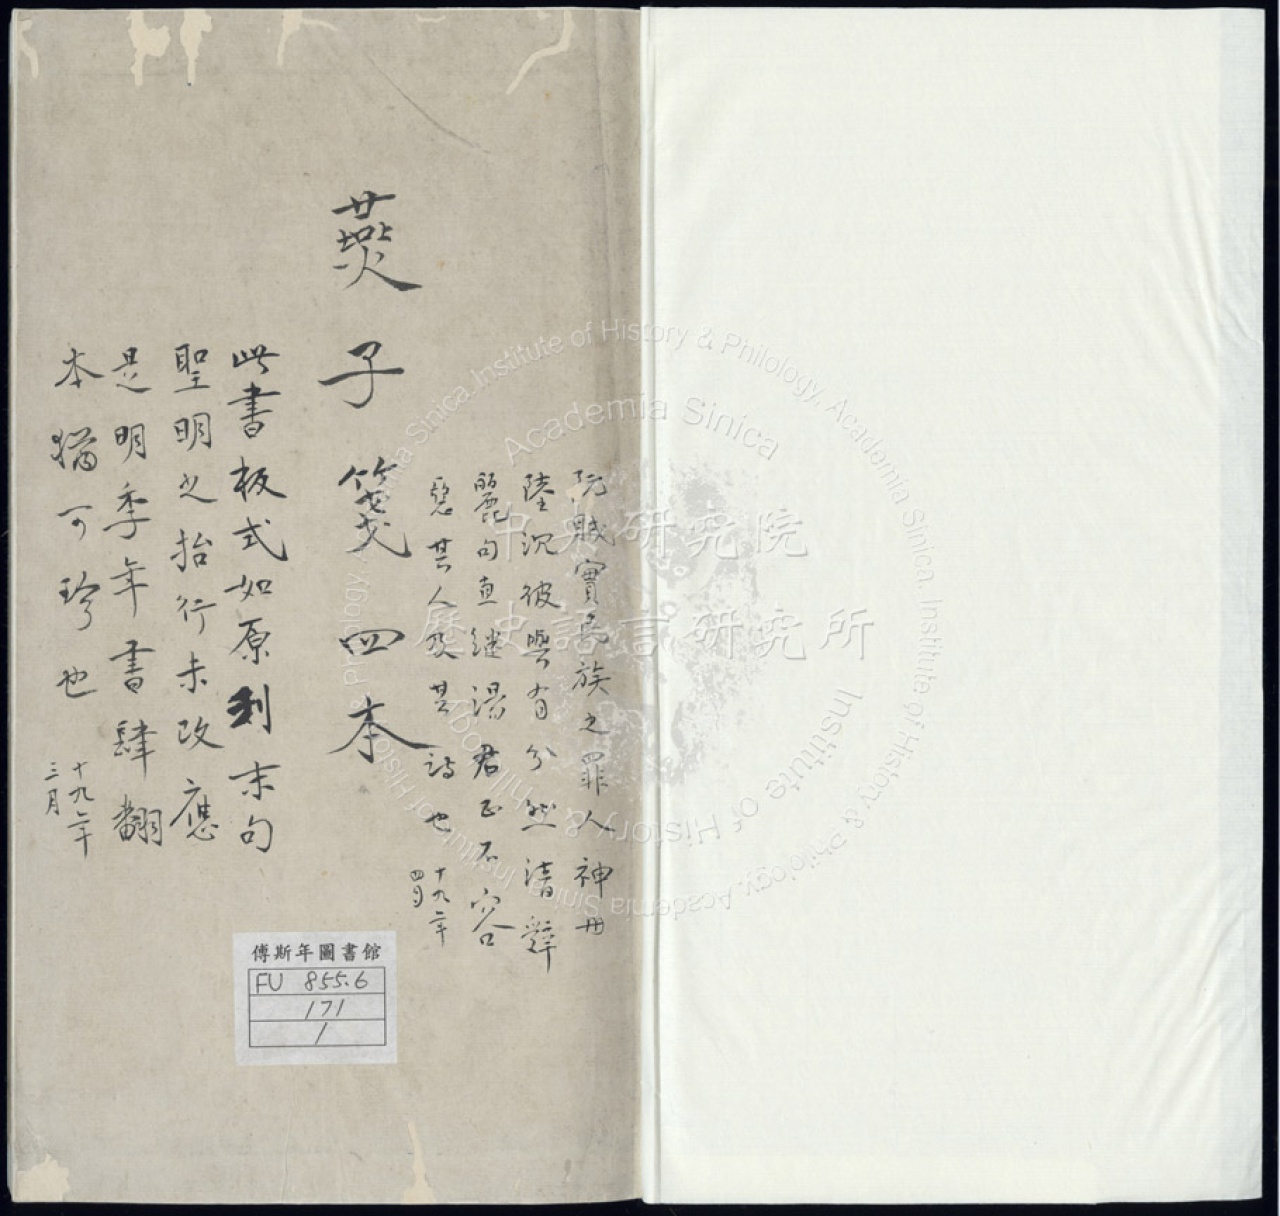 阮賊實民族之罪人神州
陸沉彼與有分然清辭
麗句直繼湯君正不容
惡其人及其詩也
十九年
四月
燕子箋 四本
此書板式如原刻末句
聖明之抬行未改應
是明季年書肆翻
本猶可珍也
十九年
三月
傅斯年圖書館
FU 855.6
171
1
中央研究院
歷史語言研究所
Institute of History & Philology, Academia Sinica
Academia Sinica